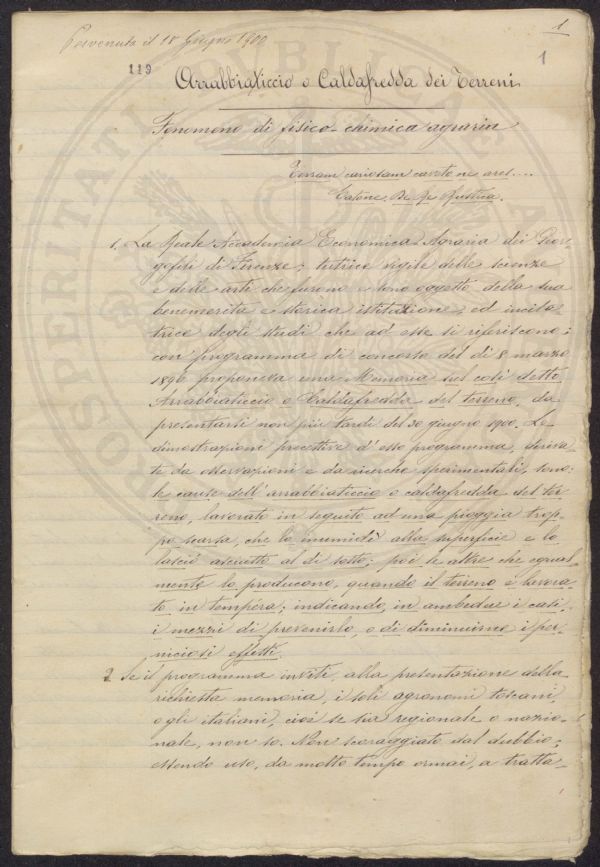 Pervenuta il 18 Giugno 1900
1
119
1
Arrabbiaticcio o Caldafredda dei Terreni
Fenomeno di fisico-chimica agraria
Terram cariosam caveto ne ares....
Catone. De Re Rustica.
1. La Reale Accademia Economica-Agraria dei Geor-
gofili di Firenze; tutrice vigile delle scienze
e delle arti che furono e sono oggetto della sua
benemerita e storica istituzione; ed incita-
trice degli studi che ad esse si riferiscono;
con programma di concorso del dì 8 marzo
1896 proponeva una Memoria sul così detto
Arrabbiaticcio o Caldafredda del terreno, da
presentarsi non più tardi del 30 giugno 1900. Le
dimostrazioni precettive d'esso programma, deriva-
te da osservazioni e da ricerche sperimentali, sono:
le cause dell'arrabbiaticcio o caldafredda del ter-
reno, lavorato in seguito ad una pioggia trop-
po scarsa, che lo inumidì alla superficie e lo
lasciò asciutto al di sotto; poi le altre che egual-
mente lo producono, quando il terreno è lavora-
to in tempéra; indicando, in ambedue i casi,
i mezzi di prevenirlo, o di diminuirne i per-
niciosi effetti.
2. Se il programma inviti, alla presentazione della
richiesta memoria, i soli agronomi toscani,
o gli italiani, cioè se sia regionale o nazio-
nale, non so. Non scoraggiato dal dubbio;
essendo uso, da molto tempo ormai, a tratta-
PROSPERITATI PUBLICAE